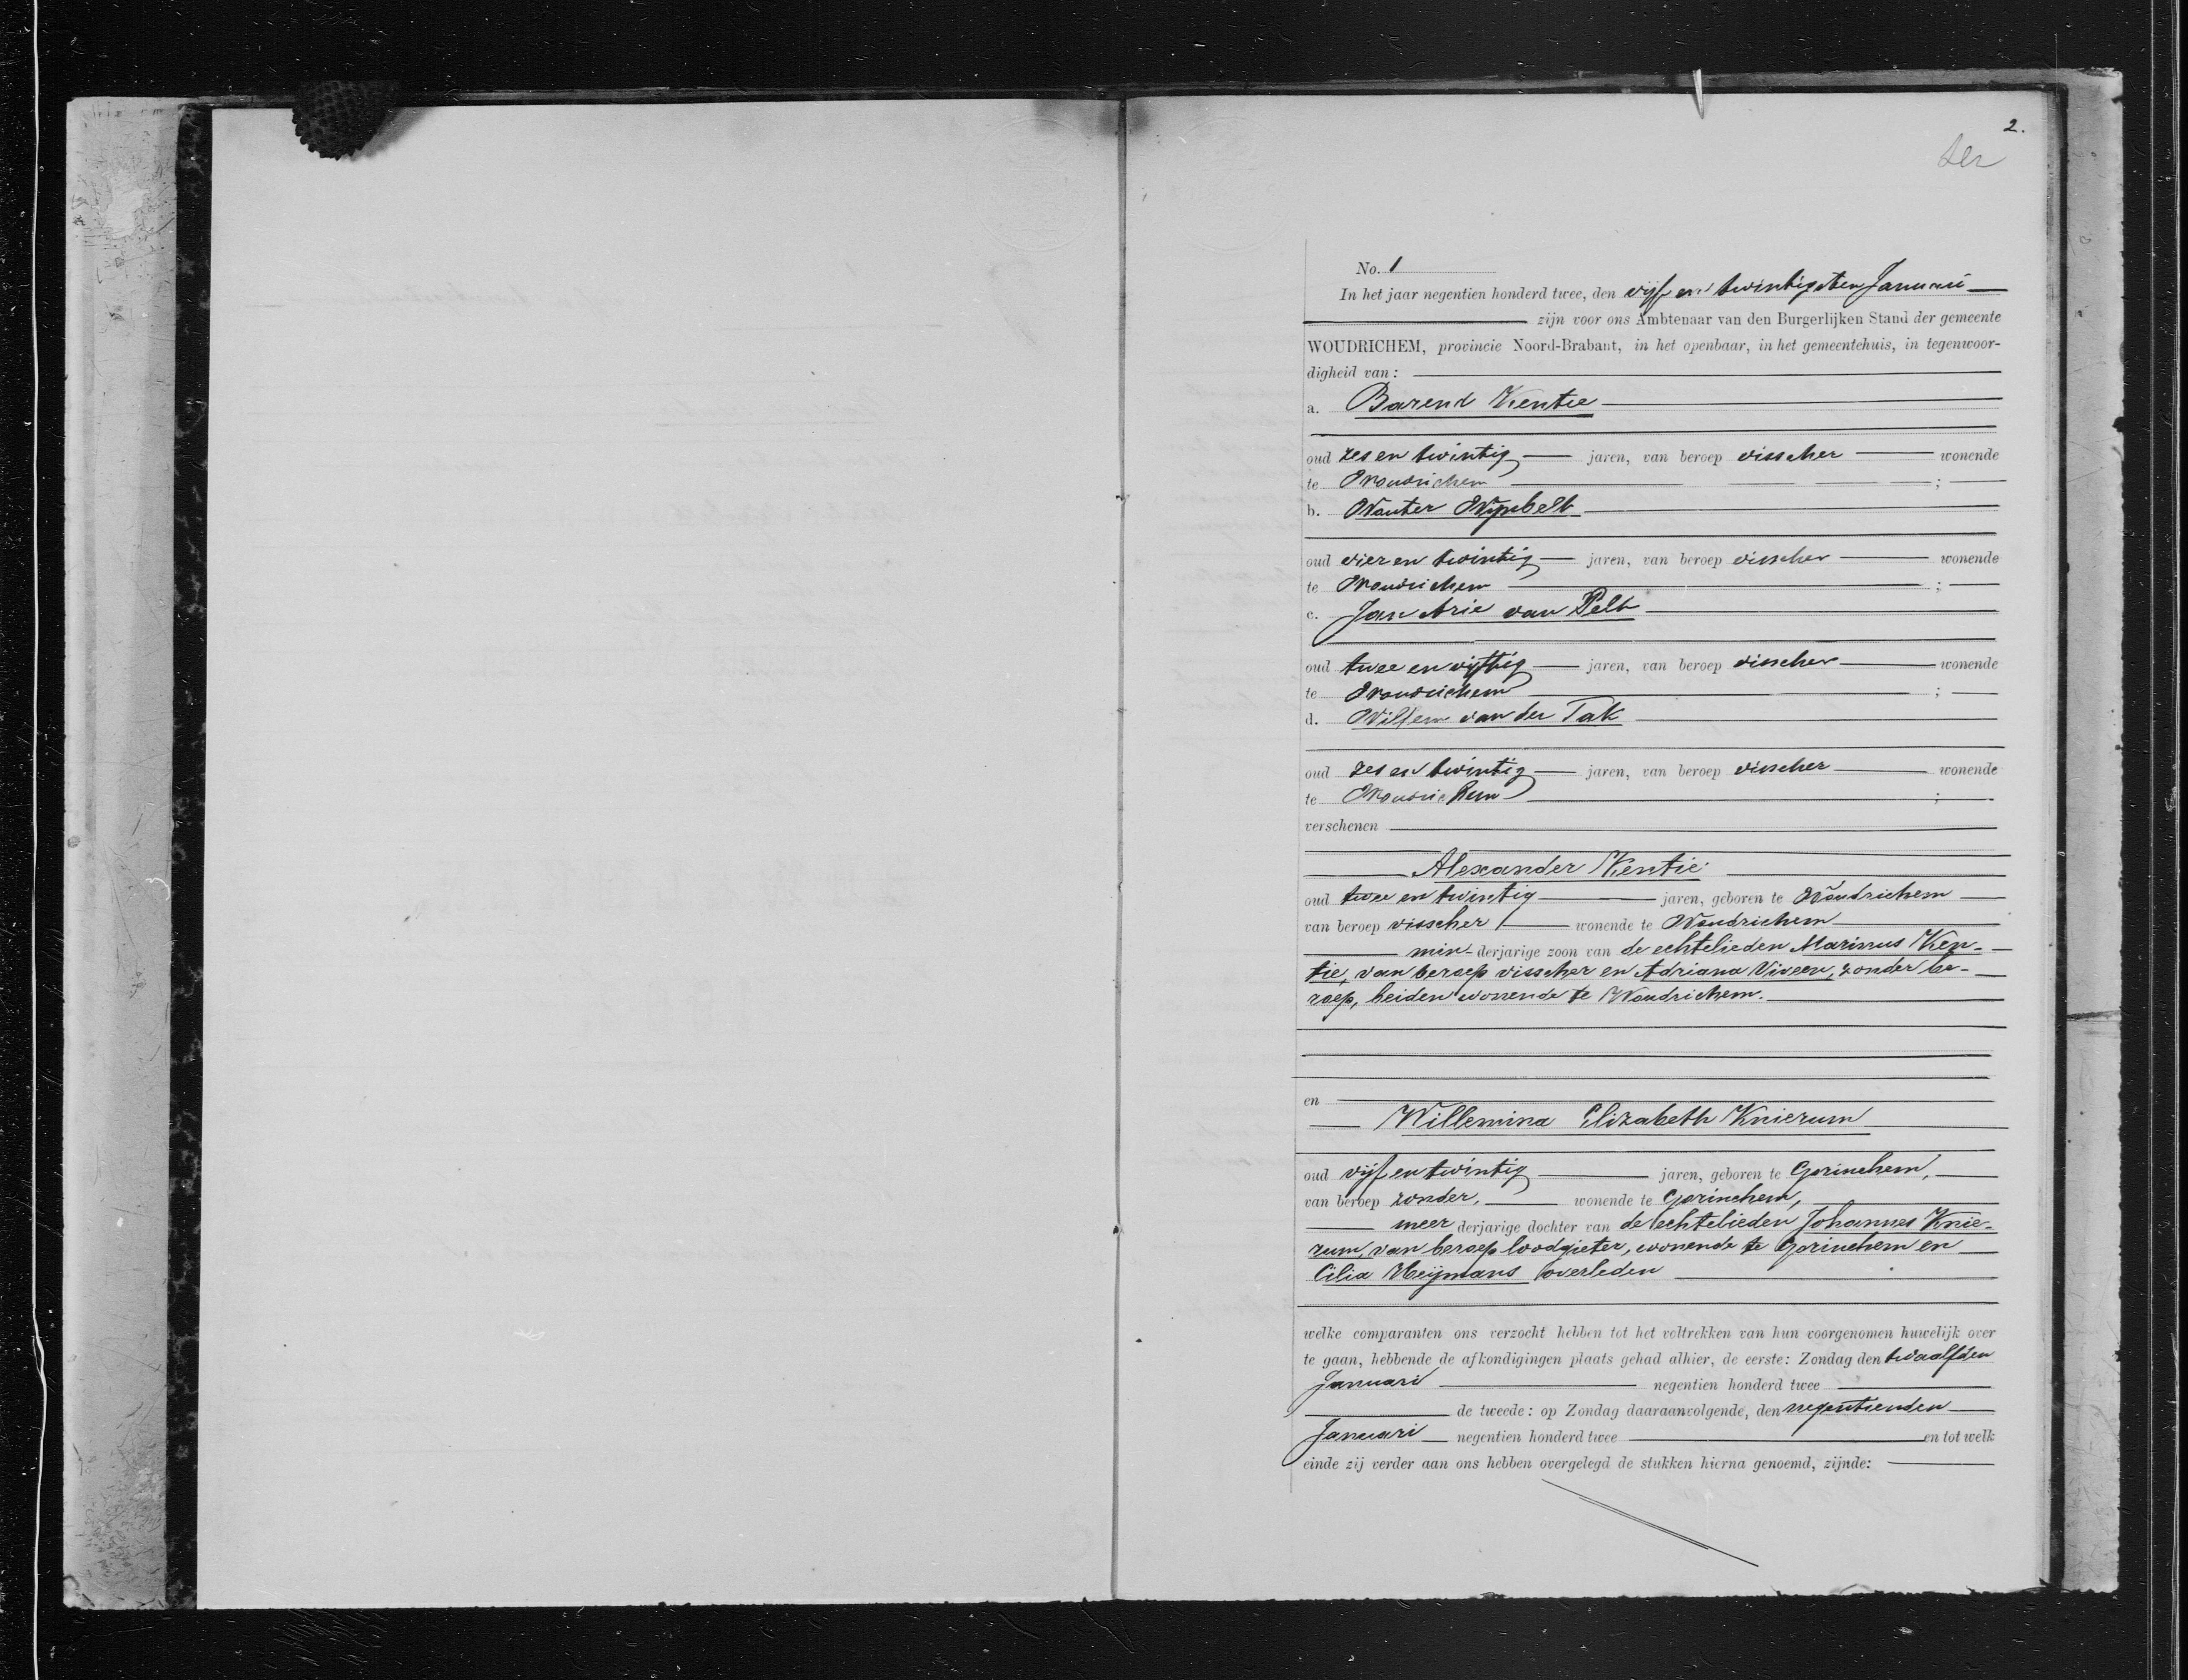 2.
No. 1
In het jaar negentien honderd twee, den vijf en twintigsten Januari
zijn voor ons Ambtenaar van den Burgerlijken Stand der gemeente
WOUDRICHEM, provincie Noord-Brabant, in het openbaar, in het gemeentehuis, in tegenwoor-
digheid van:
a. Barend Kentie
oud zes en twintig jaren, van beroep visscher wonende
te Woudrichem ;
b. Wouter Wijnbelt
oud vier en twintig jaren, van beroep visscher wonende
te Woudrichem ;
c. Jan Arie van Pelt
oud twee en vijftig jaren, van beroep visscher wonende
te Woudrichem ;
d. Willem van der Tak
oud zes en twintig jaren, van beroep visscher wonende
te Woudrichem ;
verschenen
Alexander Kentie
oud twee en twintig jaren, geboren te Woudrichem
van beroep visscher wonende te Woudrichem
min-derjarige zoon van de echtelieden Marinus Ken-
tie, van beroep visscher en Adriana Viveen, zonder be-
roep, beiden wonende te Woudrichem.
en
Willemina Elizabeth Knierum
oud vijf en twintig jaren, geboren te Gorinchem,
van beroep zonder, wonende te Gorinchem,
meer derjarige dochter van de echtelieden Johannes Knie-
rum, van beroep loodgieter, wonende te Gorinchem en
Cilia Heijmans overleden
welke comparanten ons verzocht hebben tot het voltrekken van hun voorgenomen huwelijk over
te gaan, hebbende de afkondigingen plaats gehad alhier, de eerste: Zondag den twaalfden
Januari negentien honderd twee
de tweede: op Zondag daaraanvolgende, den negentienden
Januari negentien honderd twee en tot welk
einde zij verder aan ons hebben overgelegd de stukken hierna genoemd, zijnde: